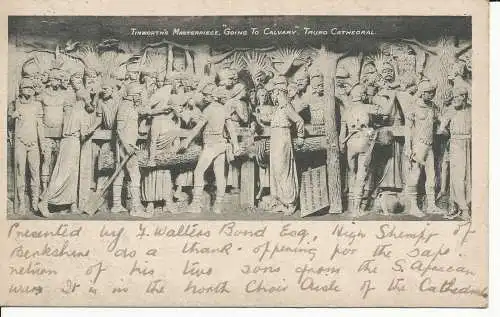 Tinworth's Masterpiece, "Going To Calvary". Truro Cathedral.
Presented by F. Walters Bond Esq., High Sheriff of
Berkshire as a thank-offering for the safe
return of his two sons from the S. African
war. It is in the North Choir Aisle of the Cathedral